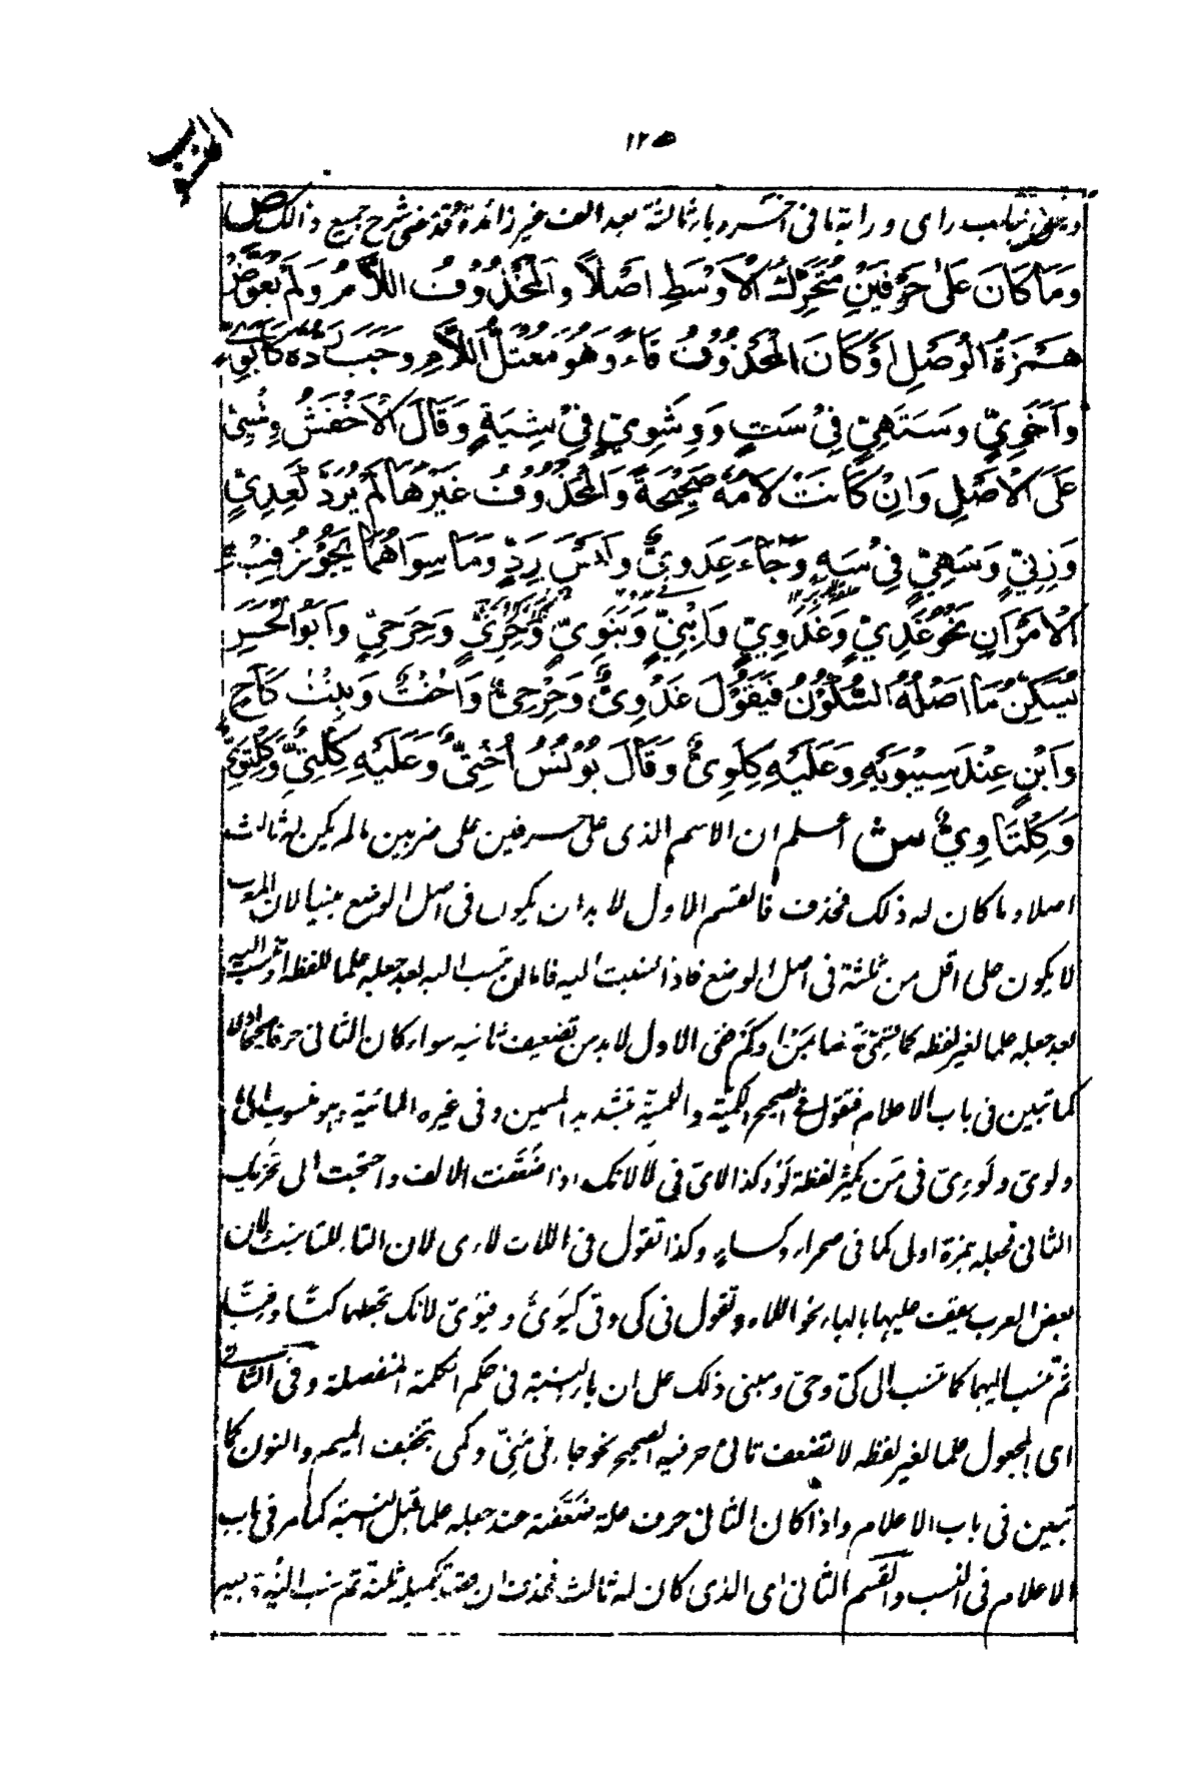 ١٢٥
المنسوب
وَمَا كَانَ عَلٰى حَرْفَيْنِ مُتَحَرِّكَ الْاَوْسَطِ اَصْلًا وَالْمَحْذُوْفُ اللَّامُ وَلَمْ يُعَوَّضْ
هَمْزَةُ الْوَصْلِ اَوْ كَانَ الْمَحْذُوْفُ فَاءً وَهُوَ مُعْتَلُّ اللَّامِ وَجَبَ رَدُّهُ كَاَبَوِيٍّ
وَاَخَوِيٍّ وَسَتَهِيٍّ فِيْ سَتٍ وَوِشَوِيٍّ فِيْ شِيَةٍ وَقَالَ الْاَخْفَشُ وِشْيِيٌّ
عَلَى الْاَصْلِ وَاِنْ كَانَتْ لَامُهُ صَحِيْحَةً وَالْمَحْذُوْفُ غَيْرَهَا لَمْ يُرَدَّ كَعِدِيٍّ
وَزِنِيٍّ وَسَهِيٍّ فِيْ سَهٍ وَجَاءَ عِدَوِيٌّ وَلَيْسَ بِرَدٍّ وَمَا سِوَاهُمَا يَجُوْزُ فِيْهِ
الْاَمْرَانِ نَحْوُ غَدِيٍّ وَغَدَوِيٍّ وَاِبْنِيٍّ وَبَنَوِيٍّ وَحِرِيٍّ وَحِرَحِيٍّ وَاَبُو الْحَسَنِ
يُسَكِّنُ مَا اَصْلُهُ السُّكُوْنُ فَيَقُوْلُ غَدْوِيٌّ وَحِرْحِيٌّ وَاُخْتٌ وَبِنْتٌ كَاَخٍ
وَابْنٍ عِنْدَ سِيْبَوَيْهِ وَعَلَيْهِ كِلَوِيٌّ وَقَالَ يُوْنُسُ اُخْتِيٌّ وَعَلَيْهِ كِلْتِيٌّ وَكِلْتَوِيٌّ
وَكِلْتَاوِيٌّ ش اعلم ان الاسم الذى على حرفين على ضربين ما لم يكن له ثالث
اصلا وما كان له ذلك فحذف فالقسم الاول لا بد ان يكون فى اصل الوضع مبنيا لان المعرب
لا يكون على اقل من ثلثة فى اصل الوضع فاذا نسبت اليه فاما ان تنسب اليه بعد جعله علما للفظه او تنسب اليه
بعد جعله علما لغير لفظه كما تسمى شخصا بمن او كم ففى الاول لا بد من تضعيف ثانيه سواء كان الثانى حرفا صحيحا او لا
كما تبين فى باب الاعلام فتقول فى الصحيح الكمّيّة واللمّيّة بتشديد الميمين وفى غيره المائيّة وهو منسوب الى ما
ولوّىّ ولوّىّ فى من يكثر لفظة لو وكذا لائىّ فى لا لانك اذا ضعفت الالف واحتجت الى تحريك
الثانى فجعله همزة اولى كما فى صحراء وكساء وكذا تقول فى اللات لائى لان التاء للتانيث لان
بعض العرب يقف عليها بالهاء نحو اللاه وتقول فى كى وفى كيوىّ وفيوىّ لانك تجعلهما كيّا وفيّا
ثم تنسب اليهما كما تنسب الى كىّ وحىّ ومبنى ذلك على ان ياء النسبة فى حكم الكلمة المنفصلة وفى الثانى
اى المجعول علما لغير لفظه لا تضعف ثانى حرفيه الصحيح نحو جاءنى منىّ وكمىّ بتخفيف الميم والنون كما
تبين فى باب الاعلام واذا كان الثانى حرف علة ضعّفته عند جعله علما قبل النسبة كما مر فى باب
الاعلام فى النسب والقسم الثانى اى الذى كان له ثالث فحذف ان قصدت تكميله ثلثة ثم تنسب اليه